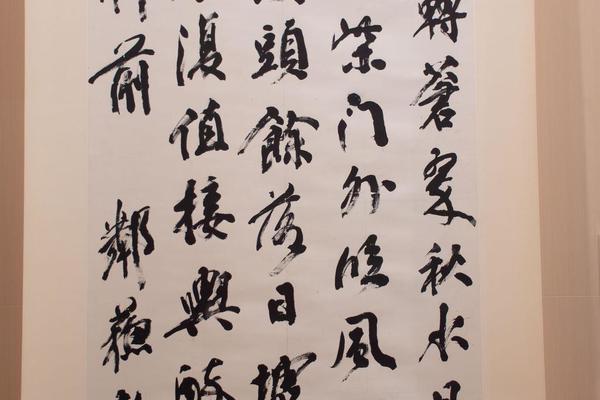 轉蒼翠秋水日
柴門外臨風
頭餘落日墟
復值接輿醉
柳前 鄰蘇